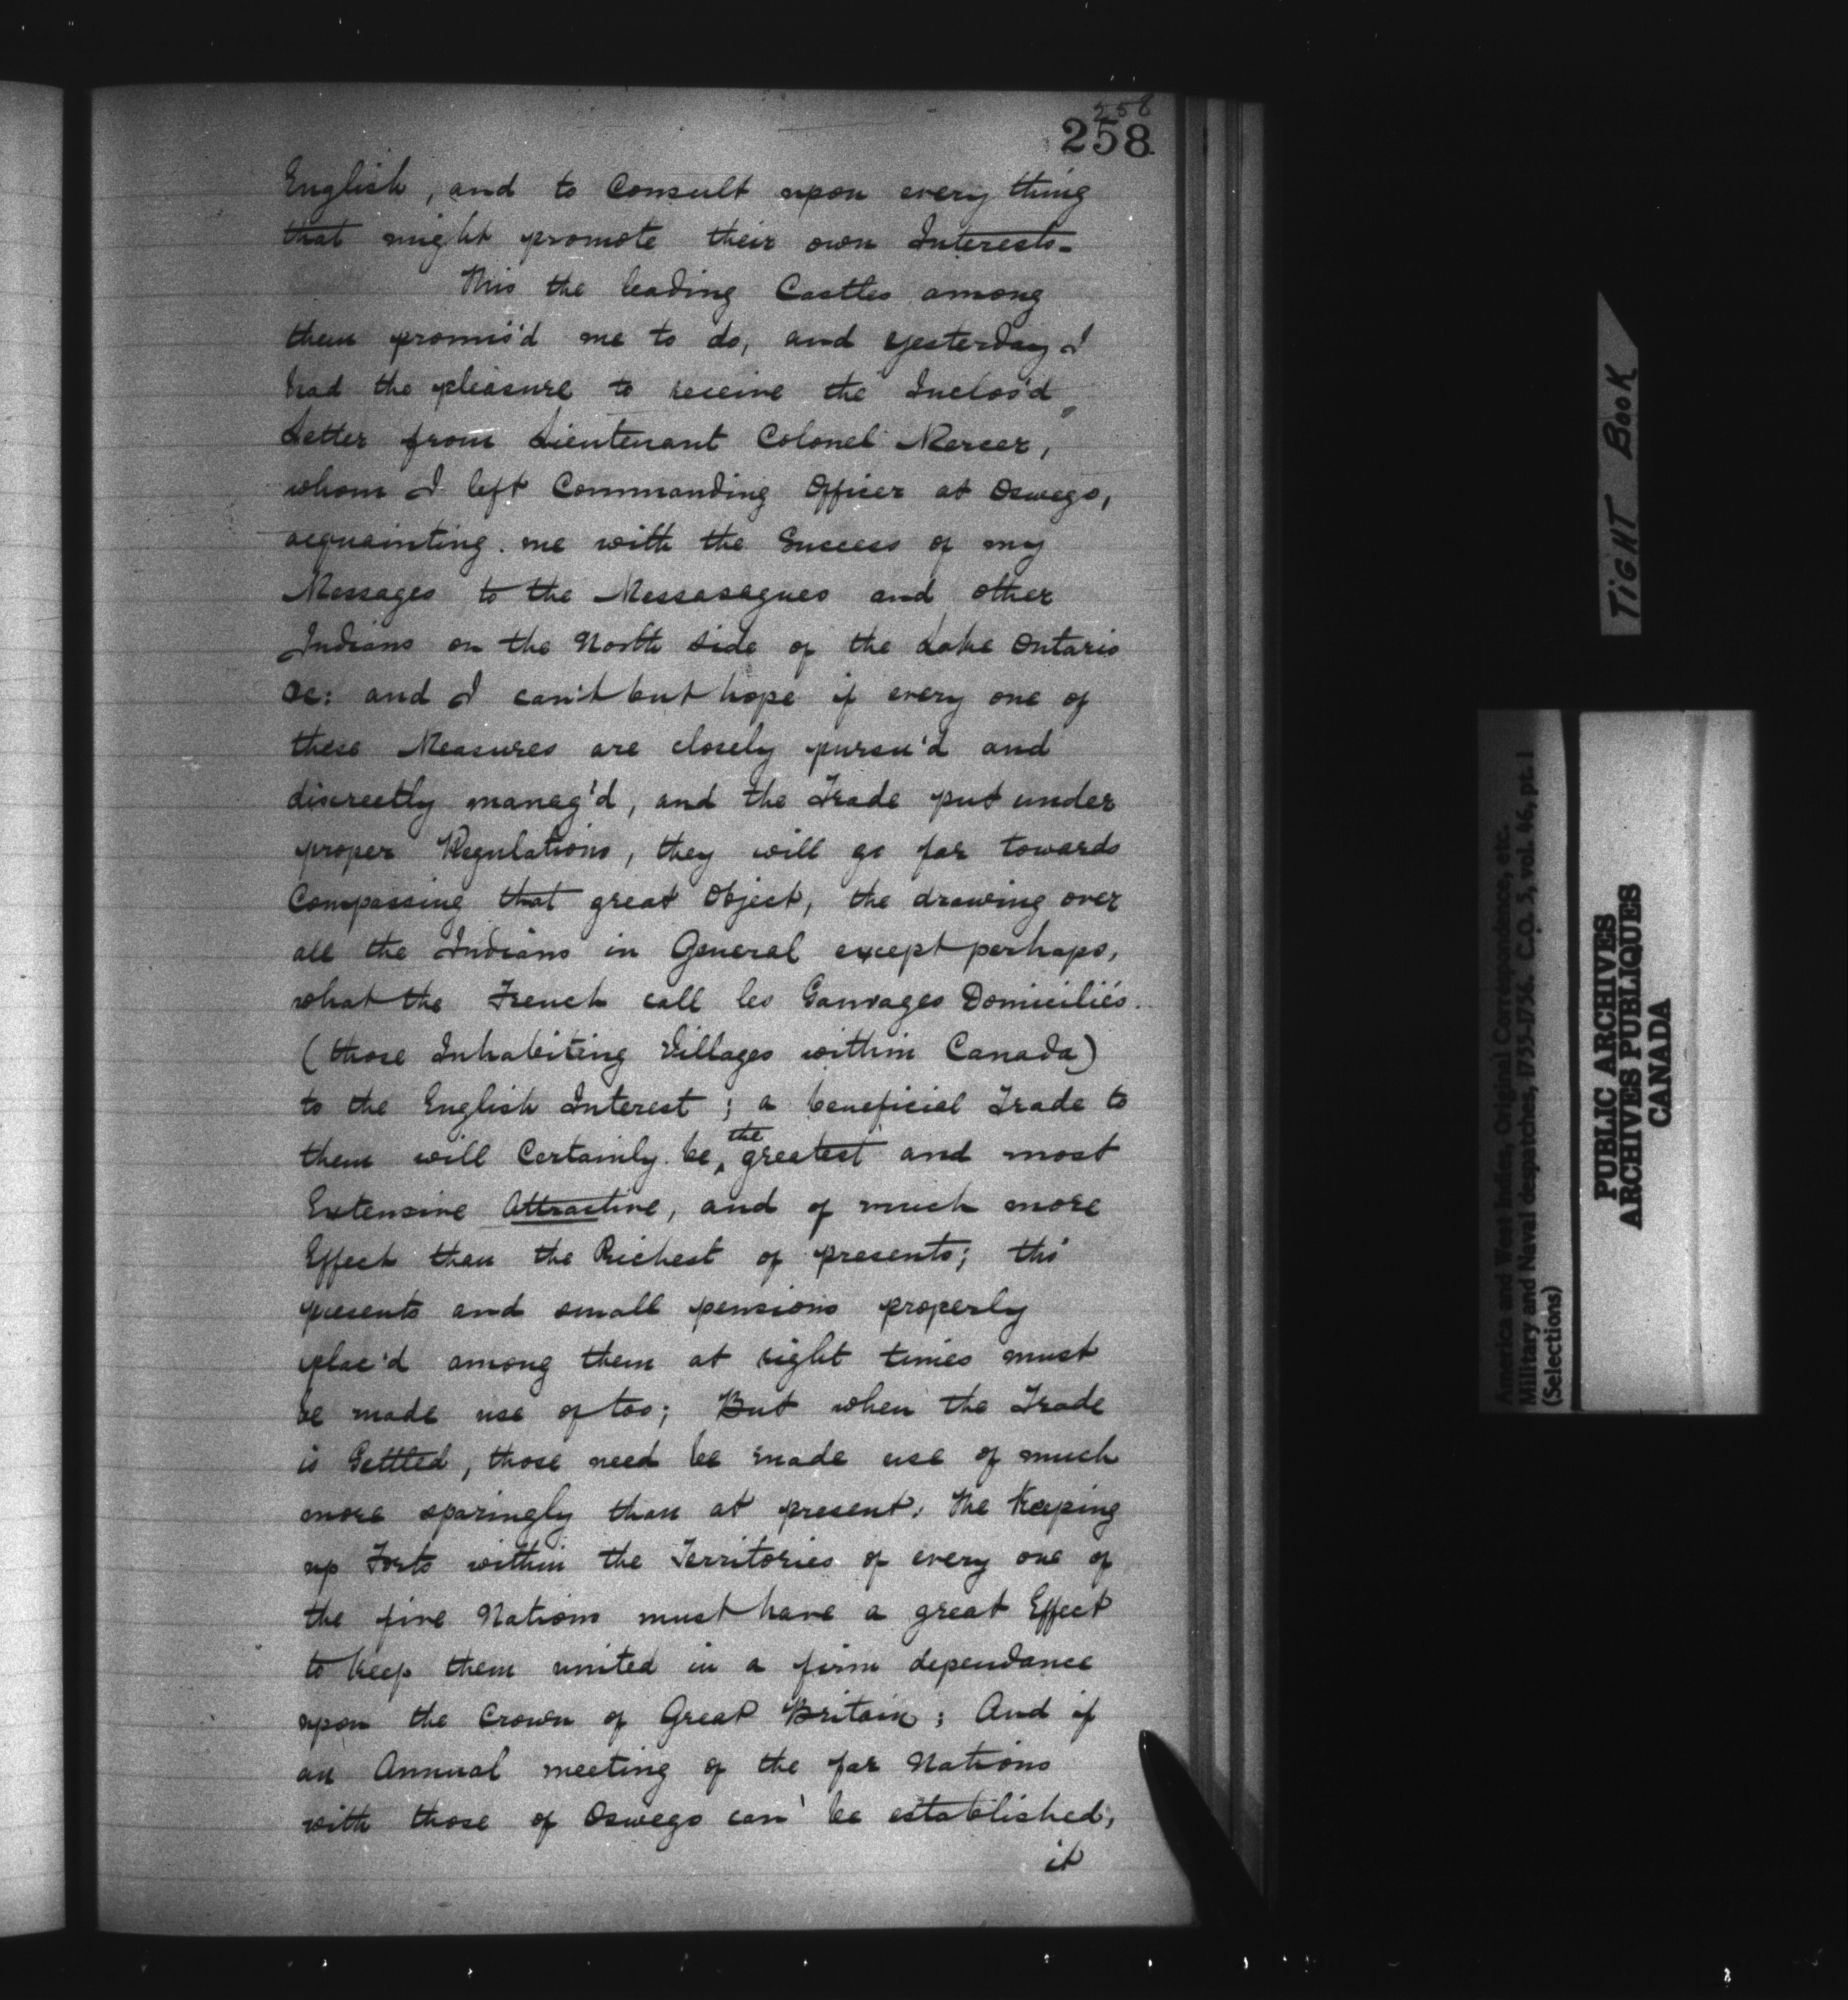 258
258
English, and to Consult upon every thing
that might promote their own Interests.
This the leading Castles among
them promis'd me to do, and yesterday I
had the pleasure to receive the Inclos'd
Letter from Lieutenant Colonel Mercer,
whom I left Commanding Officer at Oswego,
acquainting me with the Success of my
Messages to the Messasagues and other
Indians on the North side of the Lake Ontario
&c: and I can't but hope if every one of
these Measures are closely pursu'd and
discreetly manag'd, and the Trade put under
proper Regulations, they will go far towards
Compassing that great Object, the drawing over
all the Indians in General except perhaps,
what the French call les Sauvages Domiciliés
(those Inhabiting Villages within Canada)
to the English Interest; a beneficial Trade to
them will Certainly be the greatest and most
Extensive Attractive, and of much more
Effect than the Richest of presents; tho'
presents and small pensions properly
plac'd among them at right times must
be made use of too; But when the Trade
is Settled, those need be made use of much
more sparingly than at present. The Keeping
up Forts within the Territories of every one of
the five Nations must have a great Effect
to keep them united in a firm dependance
upon the Crown of Great Britain; And if
an Annual meeting of the far Nations
with those of Oswego can be established,
it
TIGHT BOOK
America and West Indies, Original Correspondence, etc.
Military and Naval despatches, 1755-1756. C.O. 5, vol. 46, pt. 1
(Selections)
PUBLIC ARCHIVES
ARCHIVES PUBLIQUES
CANADA